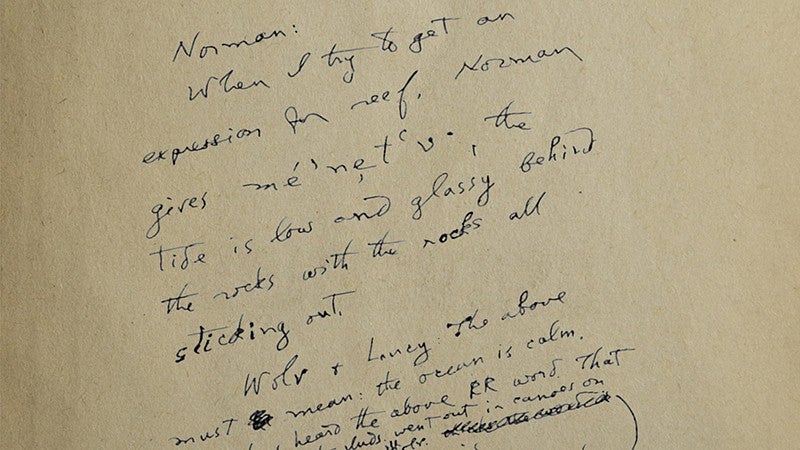 Norman:
When I try to get an
expression for reef, Norman
gives mé'nẹt‘v·, the
tide is low and glassy behind
the rocks with the rocks all
sticking out.
Wolv + Laney: The above
must mean: the ocean is calm.
heard the above RR word. That
went out in canoes on